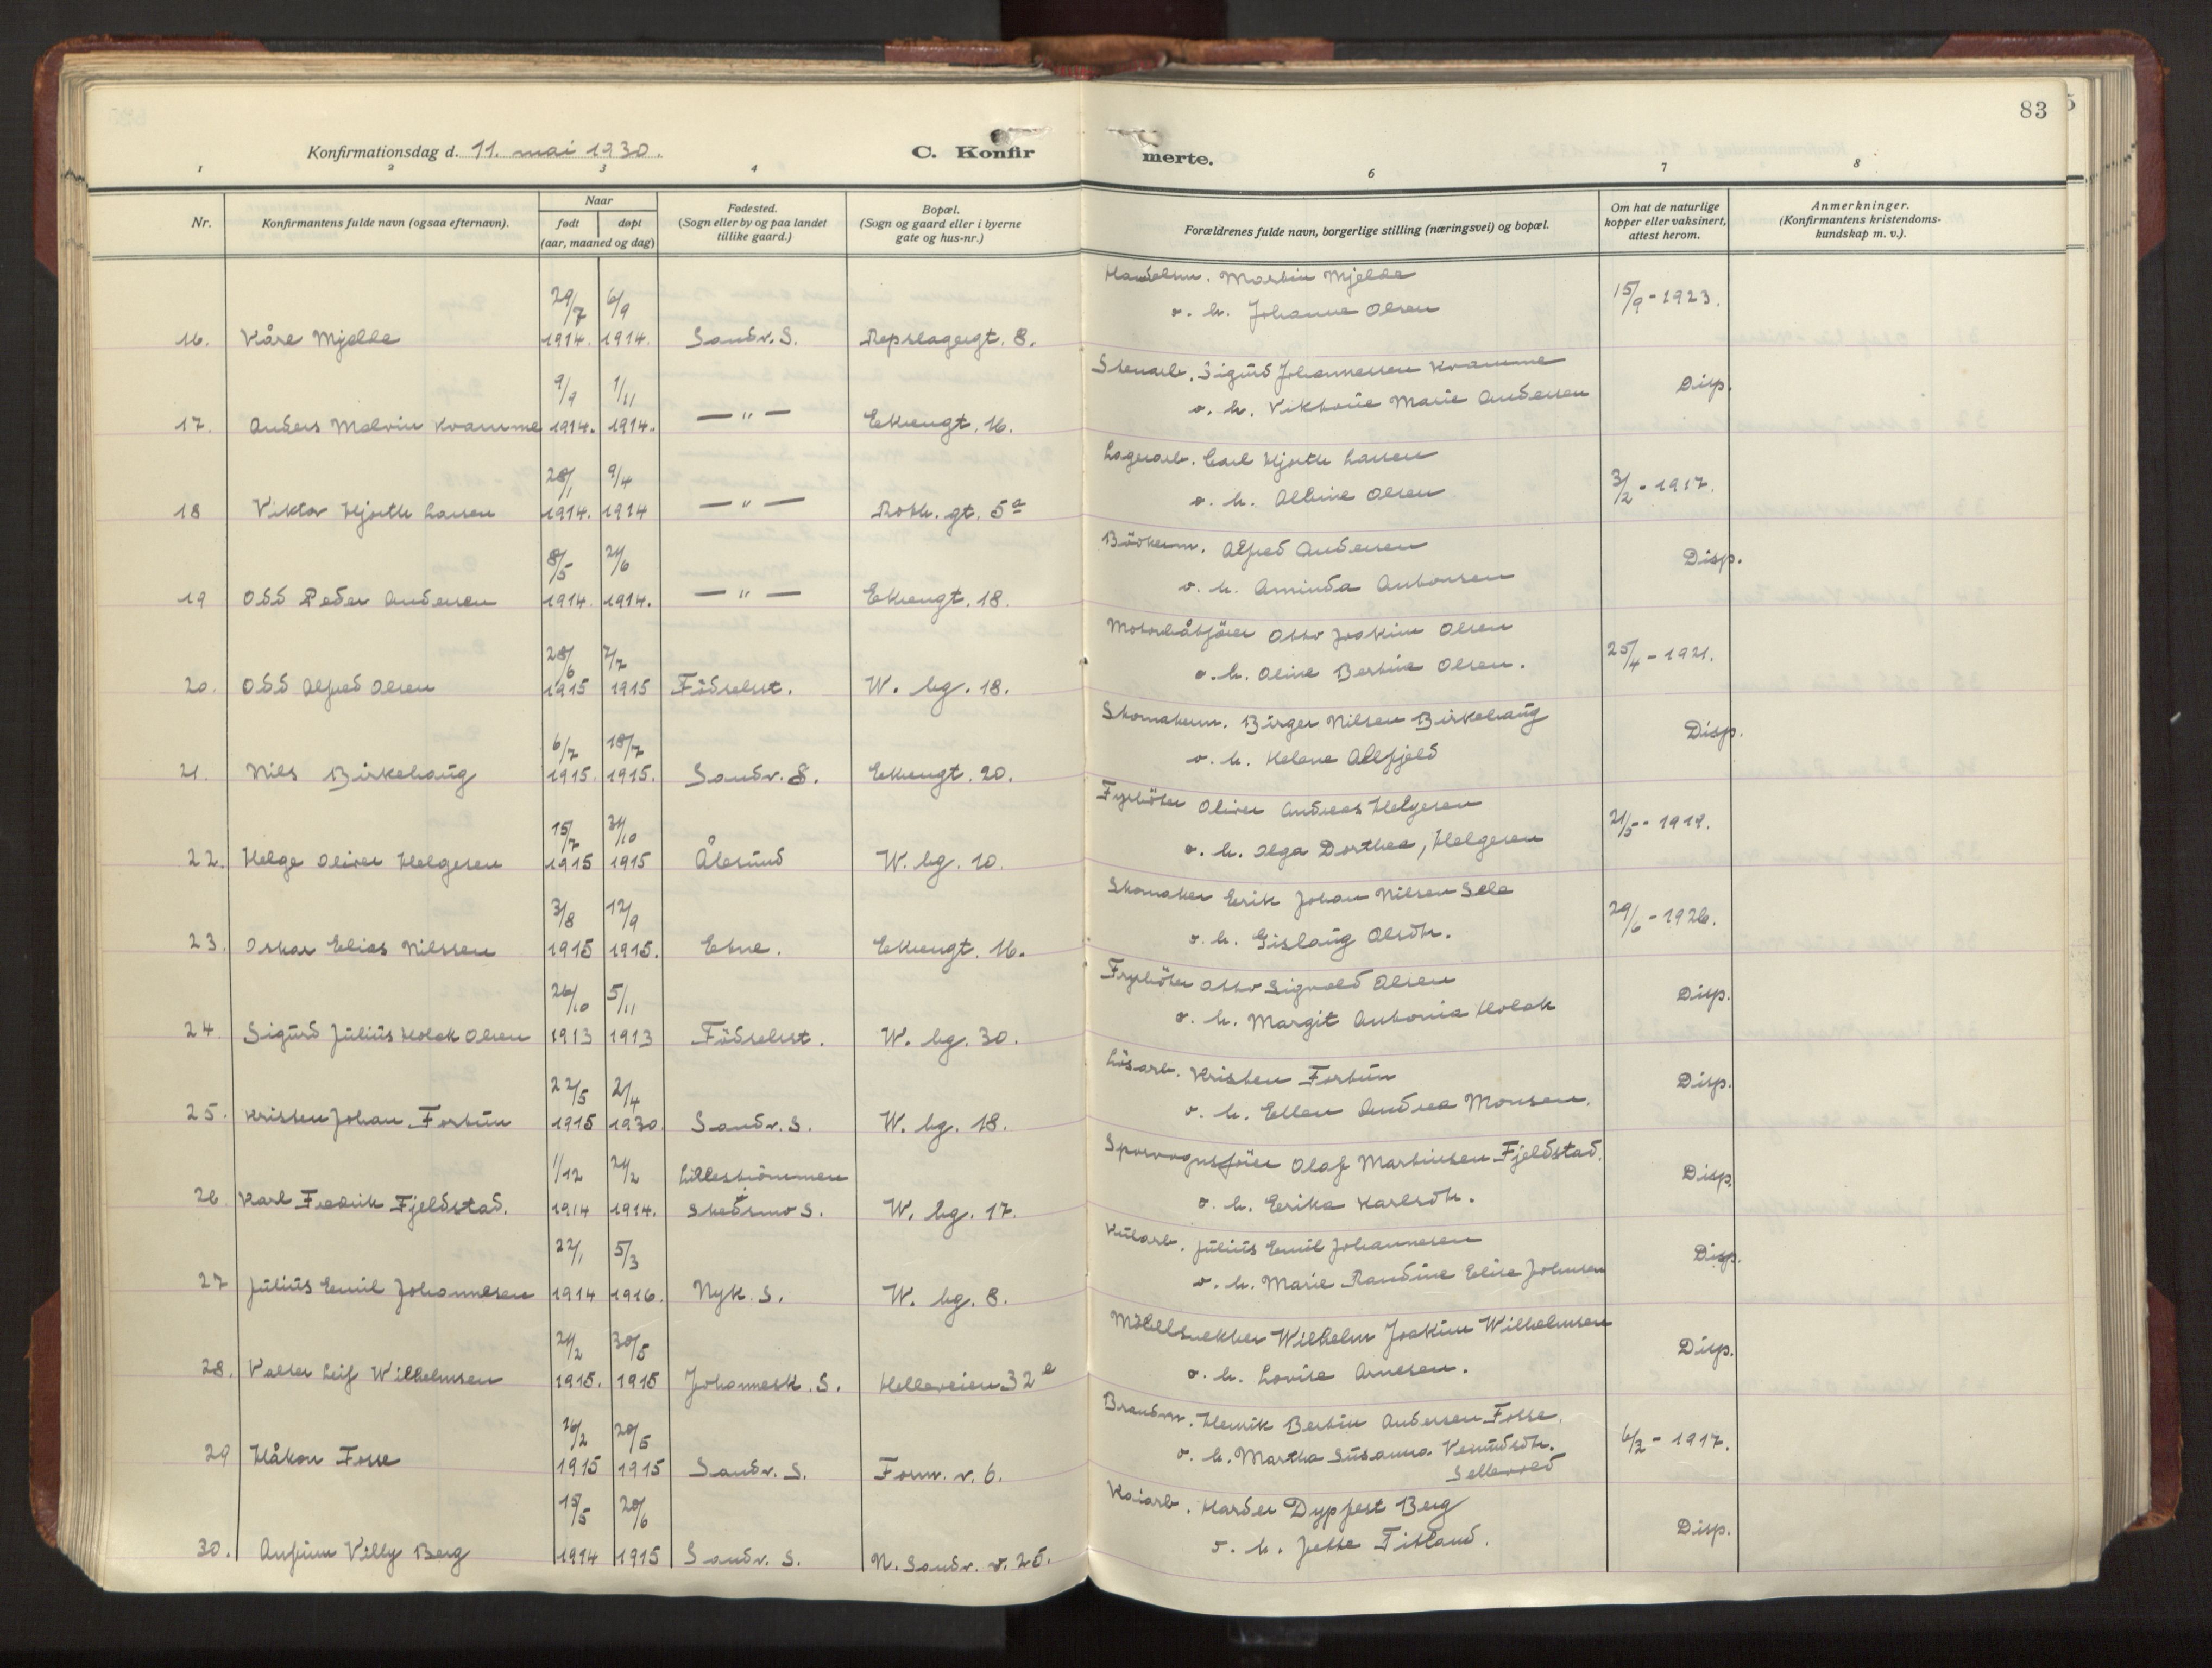 83
Konfirmationsdag d. 11. mai 1930.
C. Konfir
merte.
1 2 3 4
6 7 8
Nr.
Konfirmantens fulde navn (ogsaa efternavn).
Naar
født døpt
(aar, maaned og dag)
Fødested.
(Sogn eller by og paa landet
tillike gaard.)
Bopæl.
(Sogn og gaard eller i byerne
gate og hus-nr.)
Forældrenes fulde navn, borgerlige stilling (næringsvei) og bopæl.
Om hat de naturlige
kopper eller vaksinert,
attest herom.
Anmerkninger.
(Konfirmantens kristendoms-
kundskap m. v.).
29/7 6/9
16. Kåre Mjelde 1914. 1914. Sandv. S. Repslagergt. 8.
Handelsm. Martin Mjelde
o. h. Johanne Olsen
15/9 - 1923.
9/9 1/11
17. Anders Malvin Kvamme 1914. 1914. — " — Ekrengt. 16.
Stenarb. Sigurd Johannessen Kvamme
o. h. Viktorie Marie Andersen
Disp.
28/1 9/4
18 Viktor Hjorth Larsen 1914. 1914 — " — Rothl. gt. 5a
Lagerarb. Carl Hjorth Larsen
o. h. Albine Olsen
3/2 - 1917.
8/5 21/6
19 Odd Peder Andersen 1914. 1914. — " — Ekrengt. 18.
Bödkerm. Alfred Andersen
o. h. Aminda Antonsen
Disp.
28/6 7/7
20. Odd Alfred Olsen 1915 1915 Födselsst. W. bg. 18.
Motorbåtförer Otto Joakim Olsen
o. h. Oline Bertine Olsen.
25/4 - 1921.
6/7 18/7
21. Nils Birkehaug 1915. 1915. Sandv. S. Ekrengt. 20.
Skomakerm. Birger Nilsen Birkehaug
o. h. Helene Allfjeld
Disp.
15/7 31/10
22. Helge Oliver Helgesen 1915 1915 Ålesund W. bg. 10.
Fyrböter Oliver Andreas Helgesen
o. h. Olga Dorthea, Helgesen
21/5 - 1919.
3/8 12/9
23. Oskar Elias Nilssen 1915 1915. Etne. Ekrengt. 16.
Skomaker Erik Johan Nilsen Sele
o. h. Gislaug Olsdtr.
29/6 - 1926.
26/10 5/11
24. Sigurd Julius Holck Olsen 1913 1913 Födselsst. W. bg. 30.
Fyrböter Otto Sigvald Olsen
o. h. Margit Antonia Holck
Disp.
22/5 2/4
25. Kristen Johan Fortun 1915 1930. Sandv. S. W. bg. 18.
Lösarb. Kristen Fortun
o. h. Ellen Andrea Monsen.
Disp.
1/12 21/2 Lilleströmmen
26. Karl Fredrik Fjeldstad. 1914 1914. Skedsmo S. W. bg. 17.
Sporvognsförer Olaf Martinsen Fjeldstad.
o. h. Erika Karlsdtr.
Disp.
22/1 5/3
27 Julius Emil Johannesen 1914 1916. Nyk. S. W. bg. 8.
Kularb. Julius Emil Johannesen
o. h. Marie Randine Elise Johnsen
Disp.
21/2 30/5
28. Valter Leif Wilhelmsen 1915. 1915 Johannesk. S. Helleveien 32e
Möbelsnekker Wilhelm Joakim Wilhelmsen
o. h. Lovise Arnesen.
Disp.
26/2 20/5
29 Håkon Fosse 1915 1915 Sandv. S. Formv. v. 6.
Brandm. Henrik Bertin Andersen Fosse.
o. h. Martha Susanna Vemundsdtr.
Sellevold
6/2 - 1917.
15/5 20/6
30. Anfinn Villy Berg 1914 1915 Sandv. S. N. Sandv. v. 25.
Kaiarb. Harder Dypfest Berg
o. h. Jette Titland.
Disp.